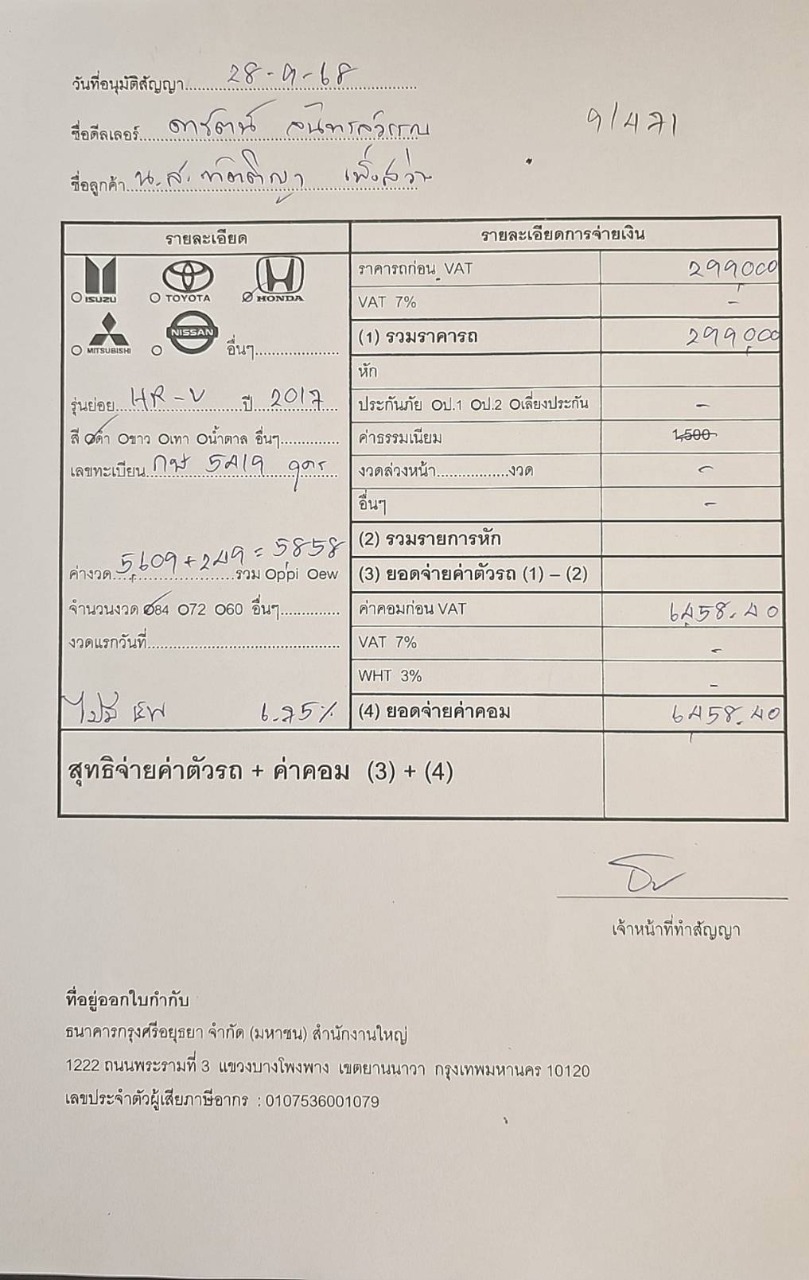 วันที่อนุมัติสัญญา 28-9-68
ชื่อดีลเลอร์
9/471
ชื่อลูกค้า น.ส.
รายละเอียด
รายละเอียดการจ่ายเงิน
ISUZU TOYOTA HONDA
ราคารถก่อน VAT 299000
VAT 7% -
MITSUBISHI NISSAN อื่นๆ
(1) รวมราคารถ 299,000
หัก
รุ่นย่อย HR-V ปี 2017
ประกันภัย Oป.1 Oป.2 Oเลี่ยงประกัน -
สี Oดำ Oขาว Oเทา Oน้ำตาล อื่นๆ
ค่าธรรมเนียม 1,500
เลขทะเบียน 5419 อุดร
งวดล่วงหน้า งวด -
อื่นๆ -
(2) รวมรายการหัก
ค่างวด 5609 + 249 = 5858 รวม Oppi Oew
(3) ยอดจ่ายค่าตัวรถ (1) – (2)
จำนวนงวด O84 O72 O60 อื่นๆ
ค่าคอมก่อน VAT 6,458.40
งวดแรกวันที่
VAT 7% -
WHT 3% -
6.75%
(4) ยอดจ่ายค่าคอม 6,458.40
สุทธิจ่ายค่าตัวรถ + ค่าคอม (3) + (4)
เจ้าหน้าที่ทำสัญญา
ที่อยู่ออกใบกำกับ
ธนาคารกรุงศรีอยุธยา จำกัด (มหาชน) สำนักงานใหญ่
1222 ถนนพระรามที่ 3 แขวงบางโพงพาง เขตยานนาวา กรุงเทพมหานคร 10120
เลขประจำตัวผู้เสียภาษีอากร : 0107536001079